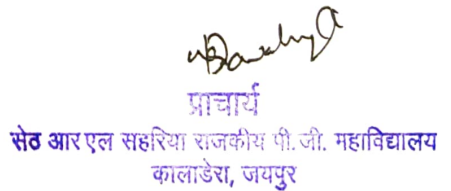 प्राचार्य
सेठ आर एल सहरिया राजकीय पी.जी. महाविद्यालय
कालाडेरा, जयपुर